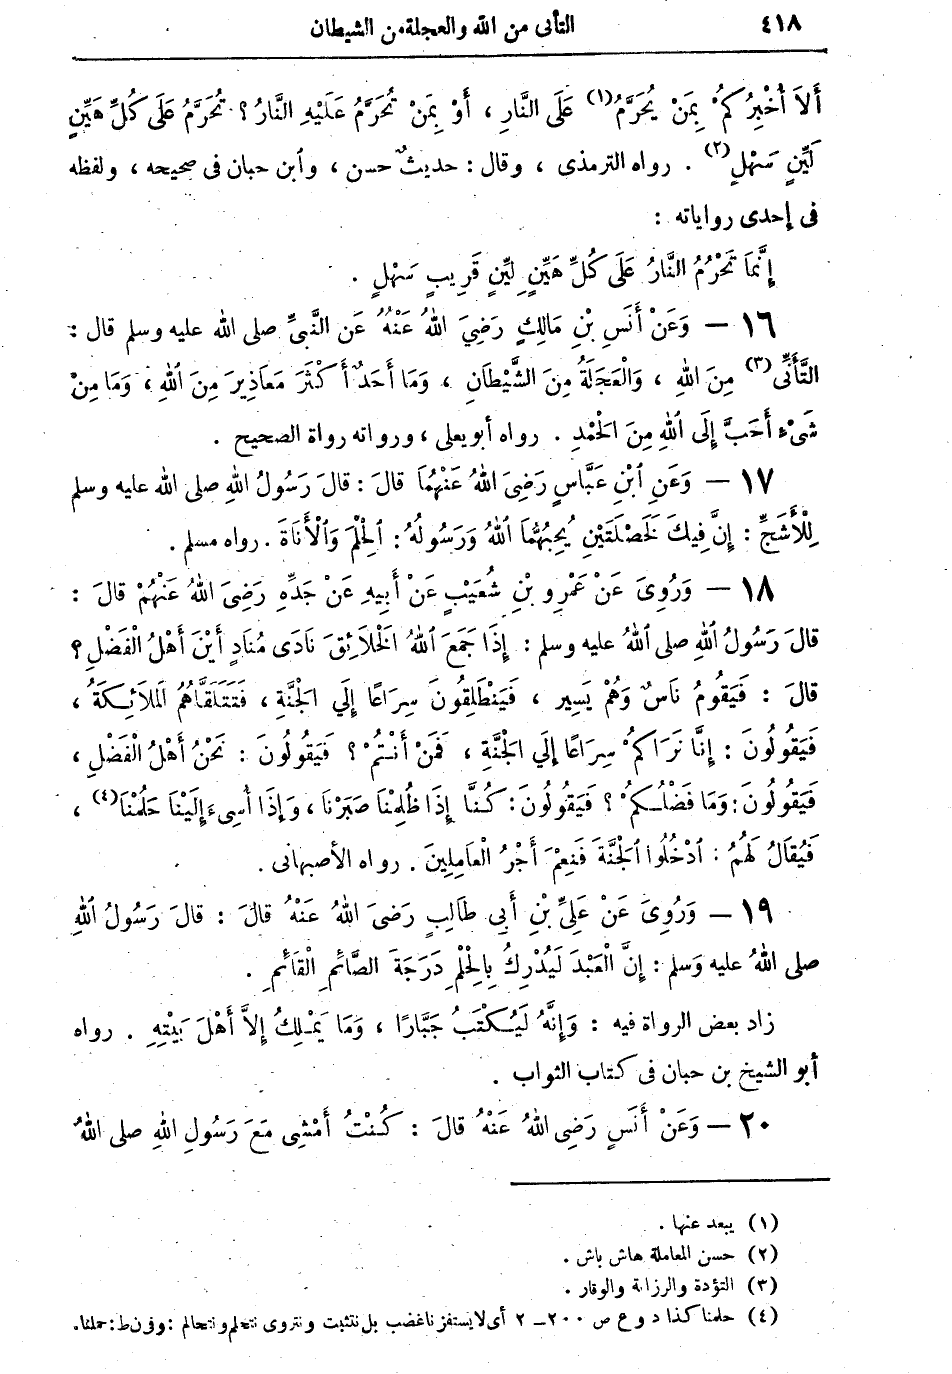 ٤١٨ التأنى من الله والعجلة من الشيطان
أَلاَ أُخْبِرُكُمْ بِمَنْ يُحَرَّمُ(١) عَلَى النَّارِ ، أَوْ بِمَنْ تُحَرَّمُ عَلَيْهِ النَّارُ ؟ تُحَرَّمُ عَلَى كُلِّ هَيِّنٍ
لَيِّنٍ سَهْلٍ(٢) . رواه الترمذى ، وقال : حديثٌ حسن ، وٱبن حبان فى صحيحه ، ولفظه
فى إحدى رواياته :
إِنَّمَا تَحْرُمُ النَّارُ عَلَى كُلِّ هَيِّنٍ لَيِّنٍ قَرِيبٍ سَهْلٍ .
١٦ — وَعَنْ أَنَسِ بْنِ مَالِكٍ رَضِيَ اللهُ عَنْهُ عَنِ النَّبِيِّ صلى الله عليه وسلم قال :
التَّأَنِّى(٣) مِنَ اللهِ ، وَالْعَجَلَةُ مِنَ الشَّيْطَانِ ، وَمَا أَحَدٌ أَكْثَرَ مَعَاذِيرَ مِنَ ٱللهِ ، وَمَا مِنْ
شَىْءٍ أَحَبَّ إِلَى ٱللهِ مِنَ الْحَمْدِ . رواه أبو يعلى ، ورواته رواة الصحيح .
١٧ — وَعَنِ ٱبْنِ عَبَّاسٍ رَضِىَ اللهُ عَنْهُمَا قالَ : قالَ رَسُولُ اللهِ صلى الله عليه وسلم
لِلْأَشَجِّ : إِنَّ فِيكَ لَخَصْلَتَيْنِ يُحِبُّهُمَا ٱللهُ وَرَسُولُهُ : الْحِلْمَ وَٱلْأَنَاةَ . رواه مسلم .
١٨ — وَرُوِىَ عَنْ عَمْرِو بْنِ شُعَيْبٍ عَنْ أَبِيهِ عَنْ جَدِّهِ رَضِىَ اللهُ عَنْهُمْ قالَ :
قالَ رَسُولُ اللهِ صلى ٱللهُ عليه وسلم : إِذَا جَمَعَ ٱللهُ الْخَلاَئِقَ نَادَى مُنَادٍ أَيْنَ أَهْلُ الْفَضْلِ ؟
قالَ : فَيَقُومُ نَاسٌ وَهُمْ يَسِير ، فَيَنْطَلِقُونَ سِرَاعًا إِلَي الْجَنَّةِ ، فَتَتَلَقَّاهُمُ الْمَلاَئِكَةُ ،
فَيَقُولُونَ : إِنَّا نَرَاكُمْ سِرَاعًا إِلَي الْجَنَّةِ ، فَمَنْ أَنْتُمْ ؟ فَيَقُولُونَ : نَحْنُ أَهْلُ الْفَضْلِ ،
فَيَقُولُونَ : وَمَا فَضْلُكُمْ ؟ فَيَقُولُونَ : كُنَّا إِذَا ظُلِمْنَا صَبَرْنَا ، وَإِذَا أُسِىءَ إِلَيْنَا حَلُمْنَا(٤) ،
فَيُقَالُ لَهُمُ : ٱدْخُلُوا ٱلْجَنَّةَ فَنِعْمَ أَجْرُ الْعَامِلِينَ . رواه الأصبهانى .
١٩ — وَرُوِىَ عَنْ عَلِىِّ بْنِ أَبِى طَالِبٍ رَضِىَ اللهُ عَنْهُ قالَ : قالَ رَسُولُ ٱللهِ
صلى اللهُ عليه وَسلم : إِنَّ الْعَبْدَ لَيُدْرِكُ بِالْحِلْمِ دَرَجَةَ الصَّائِمِ الْقَائِمِ .
زاد بعض الرواة فيه : وَإِنَّهُ لَيُكْتَبُ جَبَّارًا ، وَمَا يَمْلِكُ إِلاَّ أَهْلَ بَيْتِهِ . رواه
أبو الشيخ بن حبان فى كتاب الثواب .
٢٠ — وَعَنْ أَنَسٍ رَضِىَ اللهُ عَنْهُ قالَ : كُنْتُ أَمْشِى مَعَ رَسُولِ اللهِ صلى اللهُ
(١) يبعد عنها .
(٢) حسن المعاملة هاش باش .
(٣) التؤدة والرزانة والوقار .
(٤) حلمنا كذا د و ع ص ٢٠٠ - ٢ أى لا يستفزنا غضب بل نتثبت ونتروى نتحلم ونتحالم : وفى ن ط : حملنا .